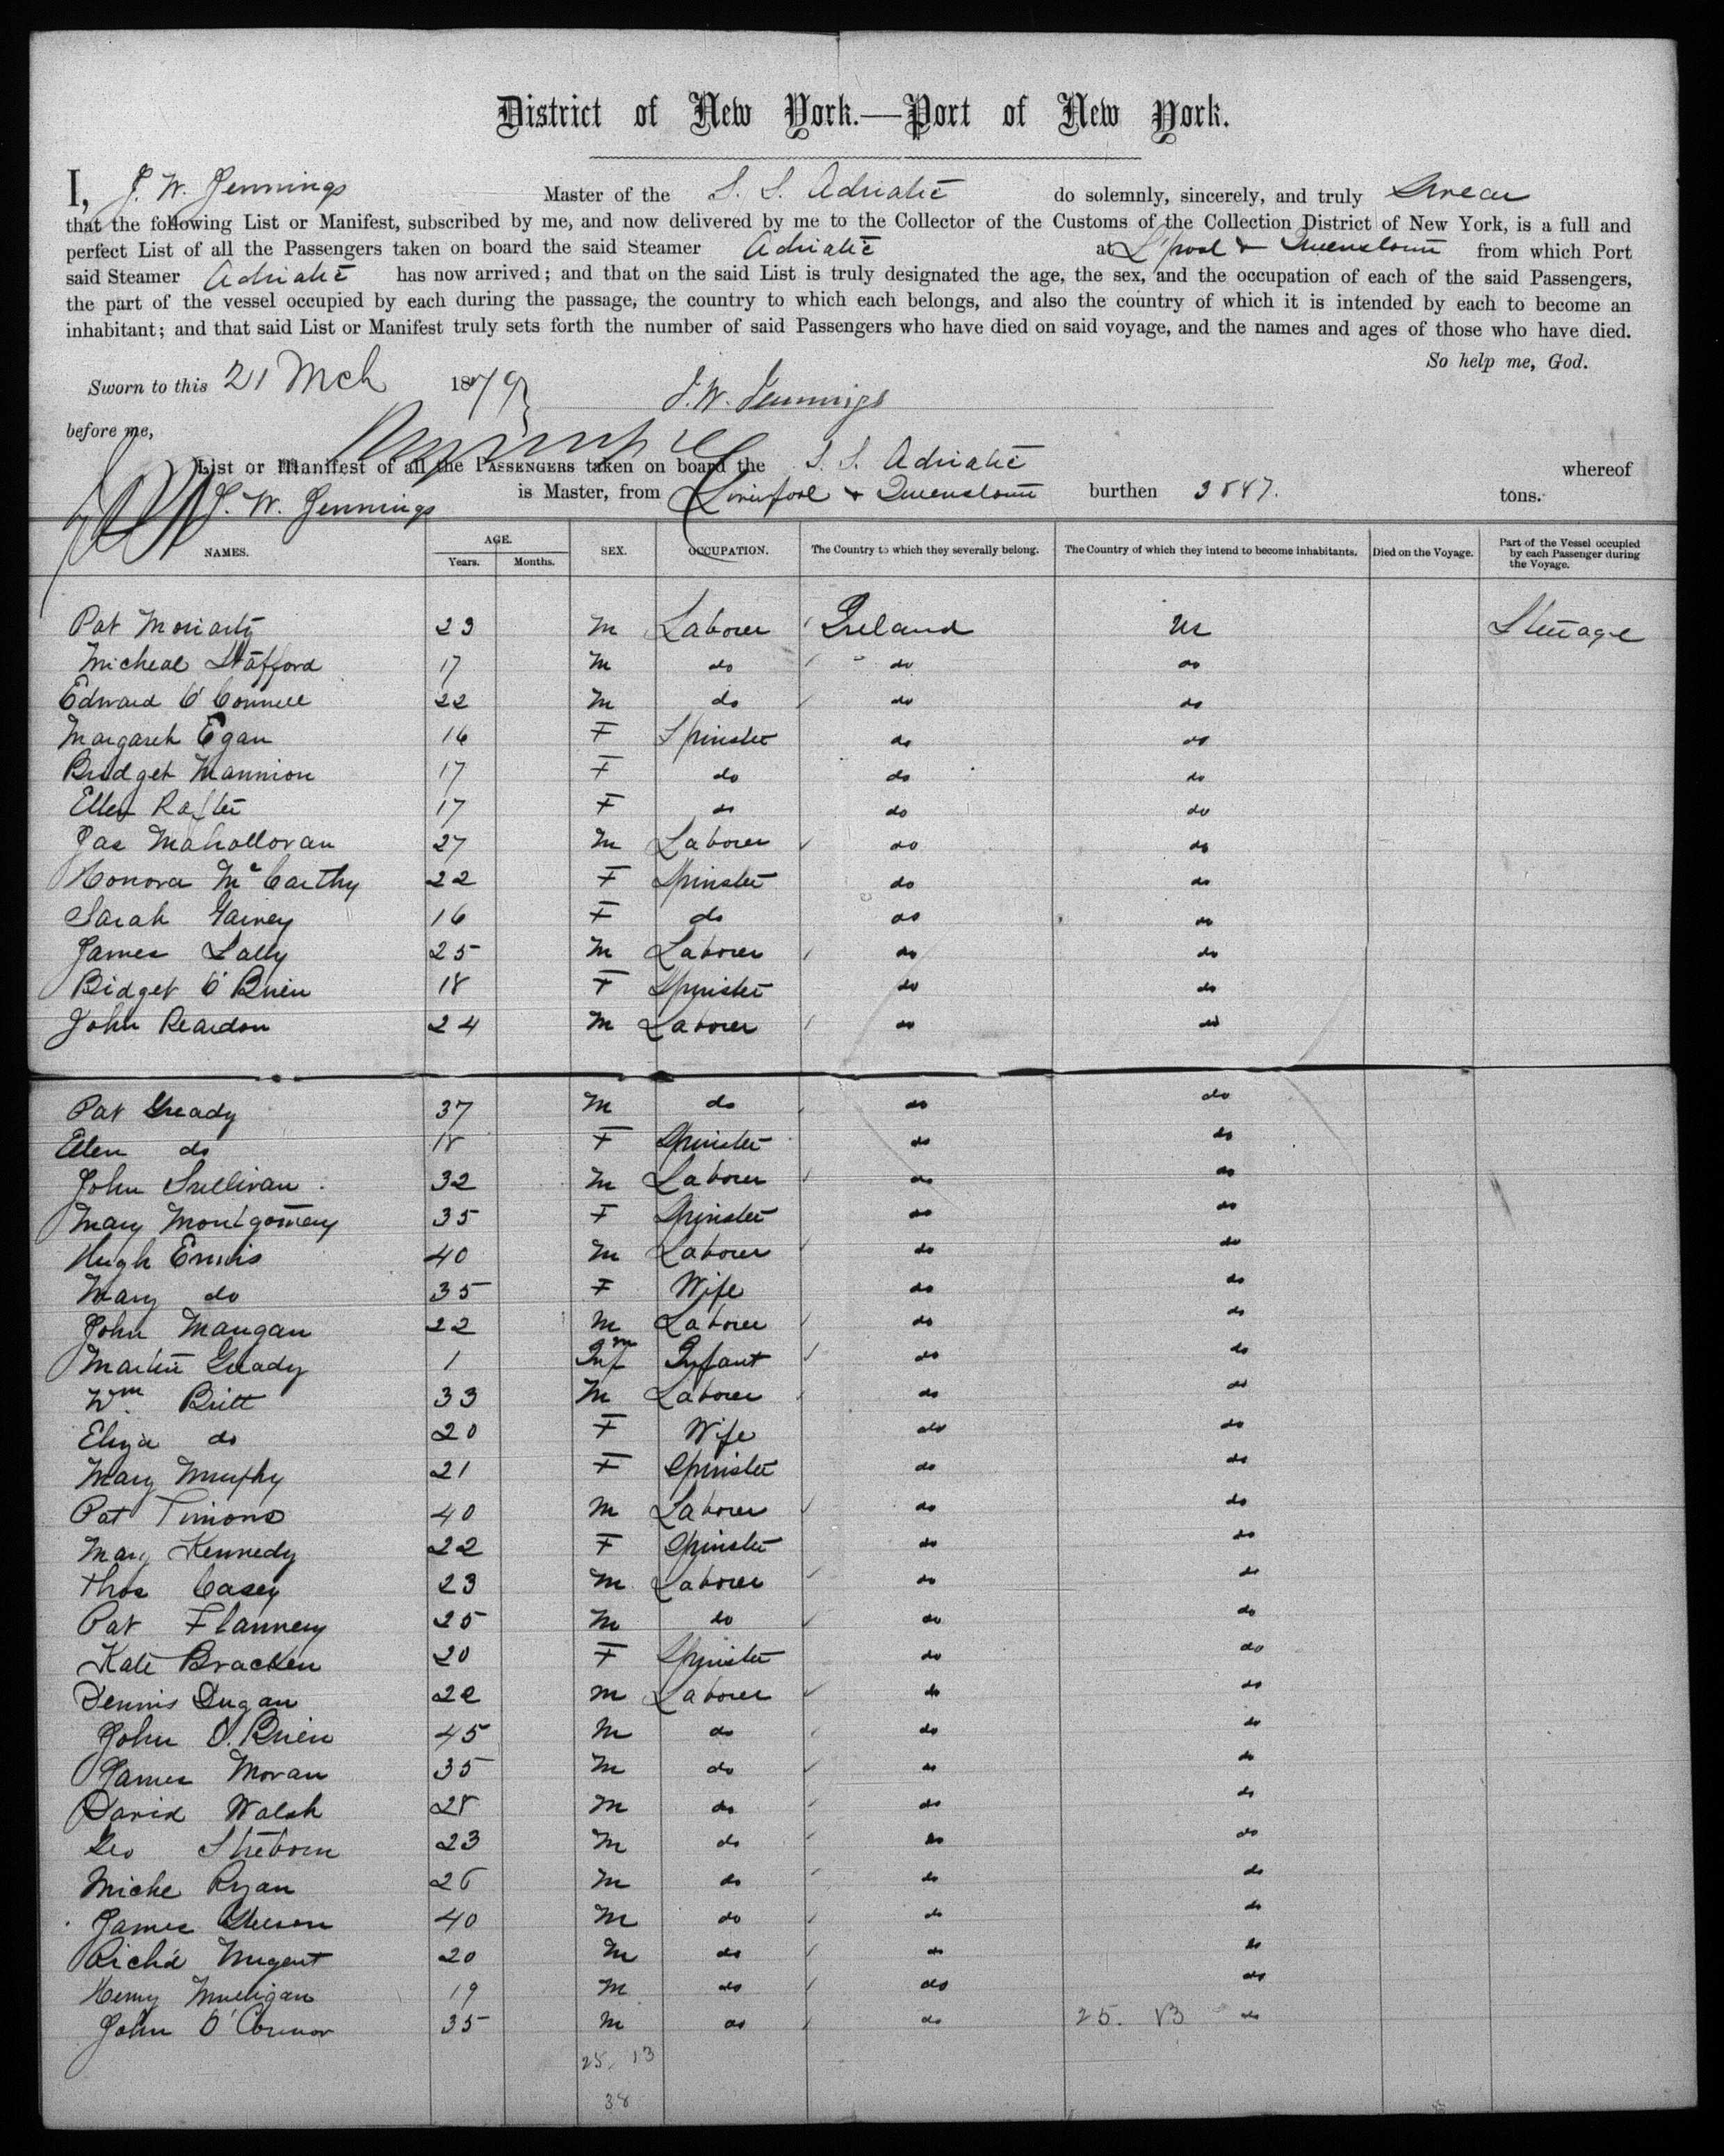 District of New York.—Port of New York.
I, J. W. Jennings Master of the S. S. Adriatic do solemnly, sincerely, and truly Swear
that the following List or Manifest, subscribed by me, and now delivered by me to the Collector of the Customs of the Collection District of New York, is a full and
perfect List of all the Passengers taken on board the said Steamer Adriatic at L'pool & Queenstown from which Port
said Steamer Adriatic has now arrived; and that on the said List is truly designated the age, the sex, and the occupation of each of the said Passengers,
the part of the vessel occupied by each during the passage, the country to which each belongs, and also the country of which it is intended by each to become an
inhabitant; and that said List or Manifest truly sets forth the number of said Passengers who have died on said voyage, and the names and ages of those who have died.
So help me, God.
Sworn to this 21 Mch 1879
J. W. Jennings
before me,
List or Manifest of all the PASSENGERS taken on board the S. S. Adriatic whereof
J. W. Jennings is Master, from Liverpool & Queenstown burthen 3887. tons.
NAMES. AGE. Years. Months. SEX. OCCUPATION. The Country to which they severally belong. The Country of which they intend to become inhabitants. Died on the Voyage. Part of the Vessel occupied by each Passenger during the Voyage.
Pat Moriarty 23 M Laborer Ireland US Steerage
Micheal Stafford 17 M do do do
Edward O'Connell 22 M do do do
Margaret Egan 16 F Spinster do do
Bridget Mannion 17 F do do do
Ellen Rafter 17 F do do do
Jas Mahalloran 27 M Laborer do do
Honora McCarthy 22 F Spinster do do
Sarah Garvey 16 F do do do
James Lally 25 M Laborer do do
Bidget O'Brien 18 F Spinster do do
John Reardon 24 M Laborer do do
Pat Gready 37 M do do do
Ellen do 18 F Spinster do do
John Sullivan 32 M Laborer do do
Mary Montgomery 35 F Spinster do do
Hugh Ennis 40 M Laborer do do
Mary do 35 F Wife do do
John Mangan 22 M Laborer do do
Martin Gready 1 Inf m Infant do do
Wm Britt 33 M Laborer do do
Eliza do 20 F Wife do do
Mary Murphy 21 F Spinster do do
Pat Timons 40 M Laborer do do
Mary Kennedy 22 F Spinster do do
Thos Casey 23 M Laborer do do
Pat Flannery 25 M do do do
Kate Bracken 20 F Spinster do do
Dennis Dugan 22 M Laborer do do
John O'Brien 45 M do do do
James Moran 35 M do do do
David Walsh 28 M do do do
Geo 23 M do do do
Miche Ryan 26 M do do do
James 40 M do do do
Richd Nugent 20 M do do do
Henry Mulligan 19 M do do do
John O'Connor 35 M do do 25. 13 do
25. 13
38